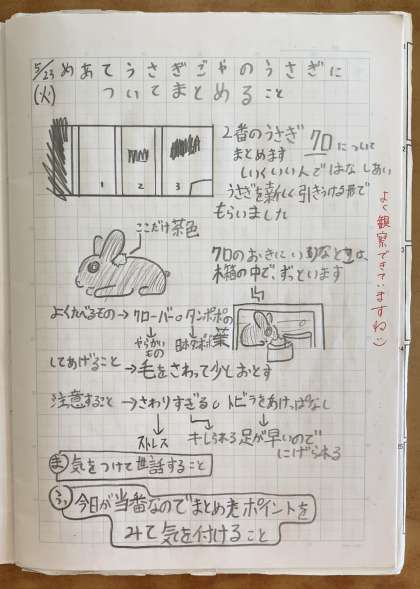 5/23 めあて うさぎごやのうさぎに
(火) ついてまとめること
1 2 3
2番のうさぎ クロ について
まとめます
しいくいいんではなしあい
うさぎを新しく引きうける形で
もらいました
ここだけ茶色
クロのおきにいりなところは、
木箱の中で、ずっといます
よくたべるもの→クローバー。タンポポの葉
やらかいもの 日本タンポポ
してあげること→毛をさわって少しおとす
注意すること→さわりすぎる。トビラをあけっぱなし
ストレス キレられる 足が早いので
にげられる
ま 気をつけて世話すること
ふ 今日が当番なのでまとめたポイントを
みて気を付けること
よく観察できていますね